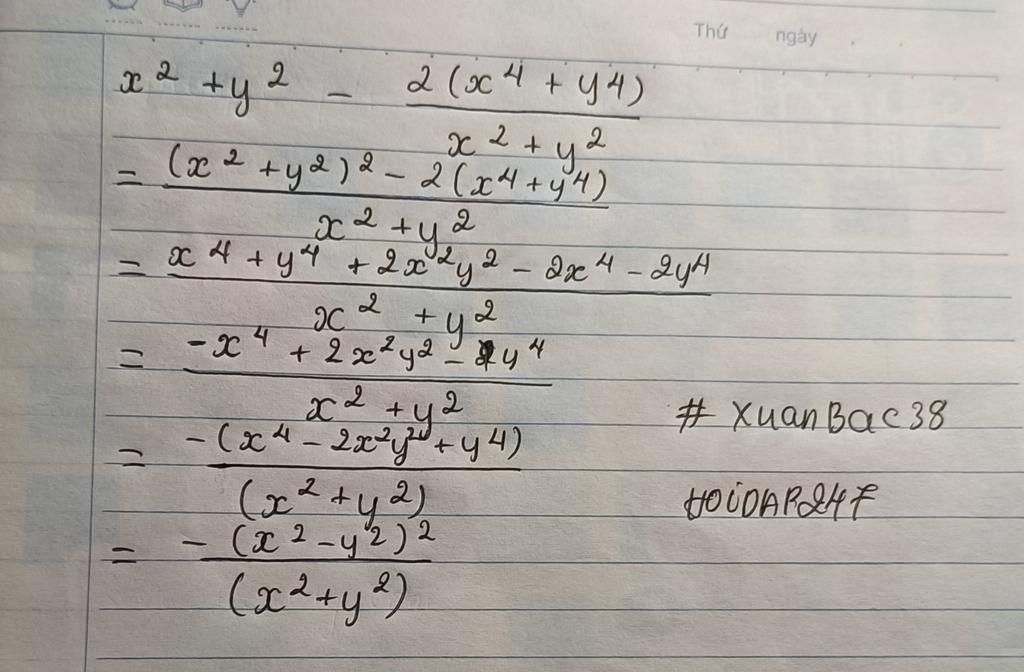 Thứ ngày
x² + y² - 2(x⁴ + y⁴)
x² + y²
= (x² + y²)² - 2(x⁴ + y⁴)
x² + y²
= x⁴ + y⁴ + 2x²y² - 2x⁴ - 2y⁴
x² + y²
= -x⁴ + 2x²y² - y⁴
x² + y²
= -(x⁴ - 2x²y² + y⁴)
(x² + y²)
= -(x² - y²)²
(x² + y²)
# XuanBac38
HOiDAP247